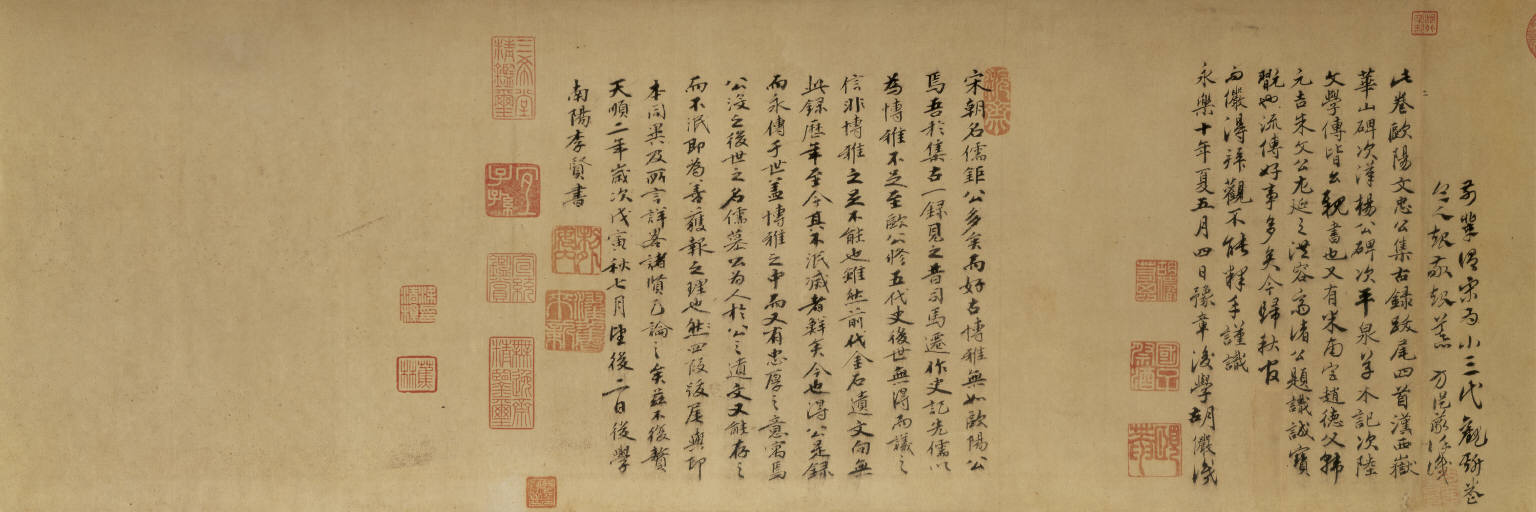 前輩謂宋為小三代觀斯卷
令人起敬起慕
此卷歐陽文忠公集古錄跋尾四首漢西嶽
華山碑次漢楊公碑次平泉草木記次陸
文學傳皆公親書也又有米南宮趙德父韓
元吉朱文公尤延之洪容齋諸公題識誠寶
翫也流傳好事多矣今歸秋官
而儼得拜觀不能釋手謹識
永樂十年夏五月四日豫章後學胡儼識
國子祭酒
宋朝名儒鉅公多矣而好古博雅無如歐陽公
焉吾於集古一錄見之昔司馬遷作史記先儒以
為博雅不足至歐公修五代史後世無得而議之
信非博雅之足不能也雖然前代金石遺文向無
此錄歷年至今其不泯滅者鮮矣今也得公是錄
而永傳于世蓋博雅之中而又有忠厚之意寓焉
公沒之後世之名儒慕公為人於公之遺文又能存之
而不泯即為善獲報之理也然四段跋尾與印
本同異及所言詳畧諸賢已論之矣茲不復贅
天順二年歲次戊寅秋七月望後二日後學
南陽李賢書
三希堂精鑑璽
宜子孫
蕉林